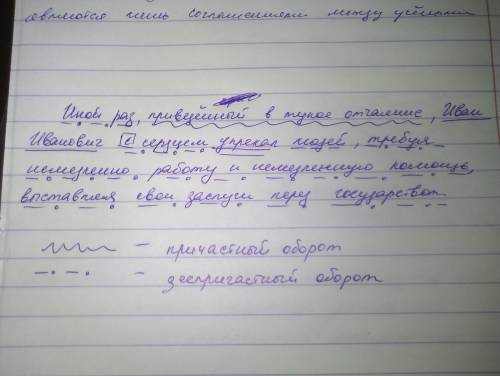 являются лишь соглашениями между учёными
Иной раз, приведённый в тупое отчаяние, Иван
Иванович с сердцем упрекал людей, требуя
немедленно работу и немедленную помощь,
выставляя свои заслуги перед государством.
— причастный оборот
— деепричастный оборот